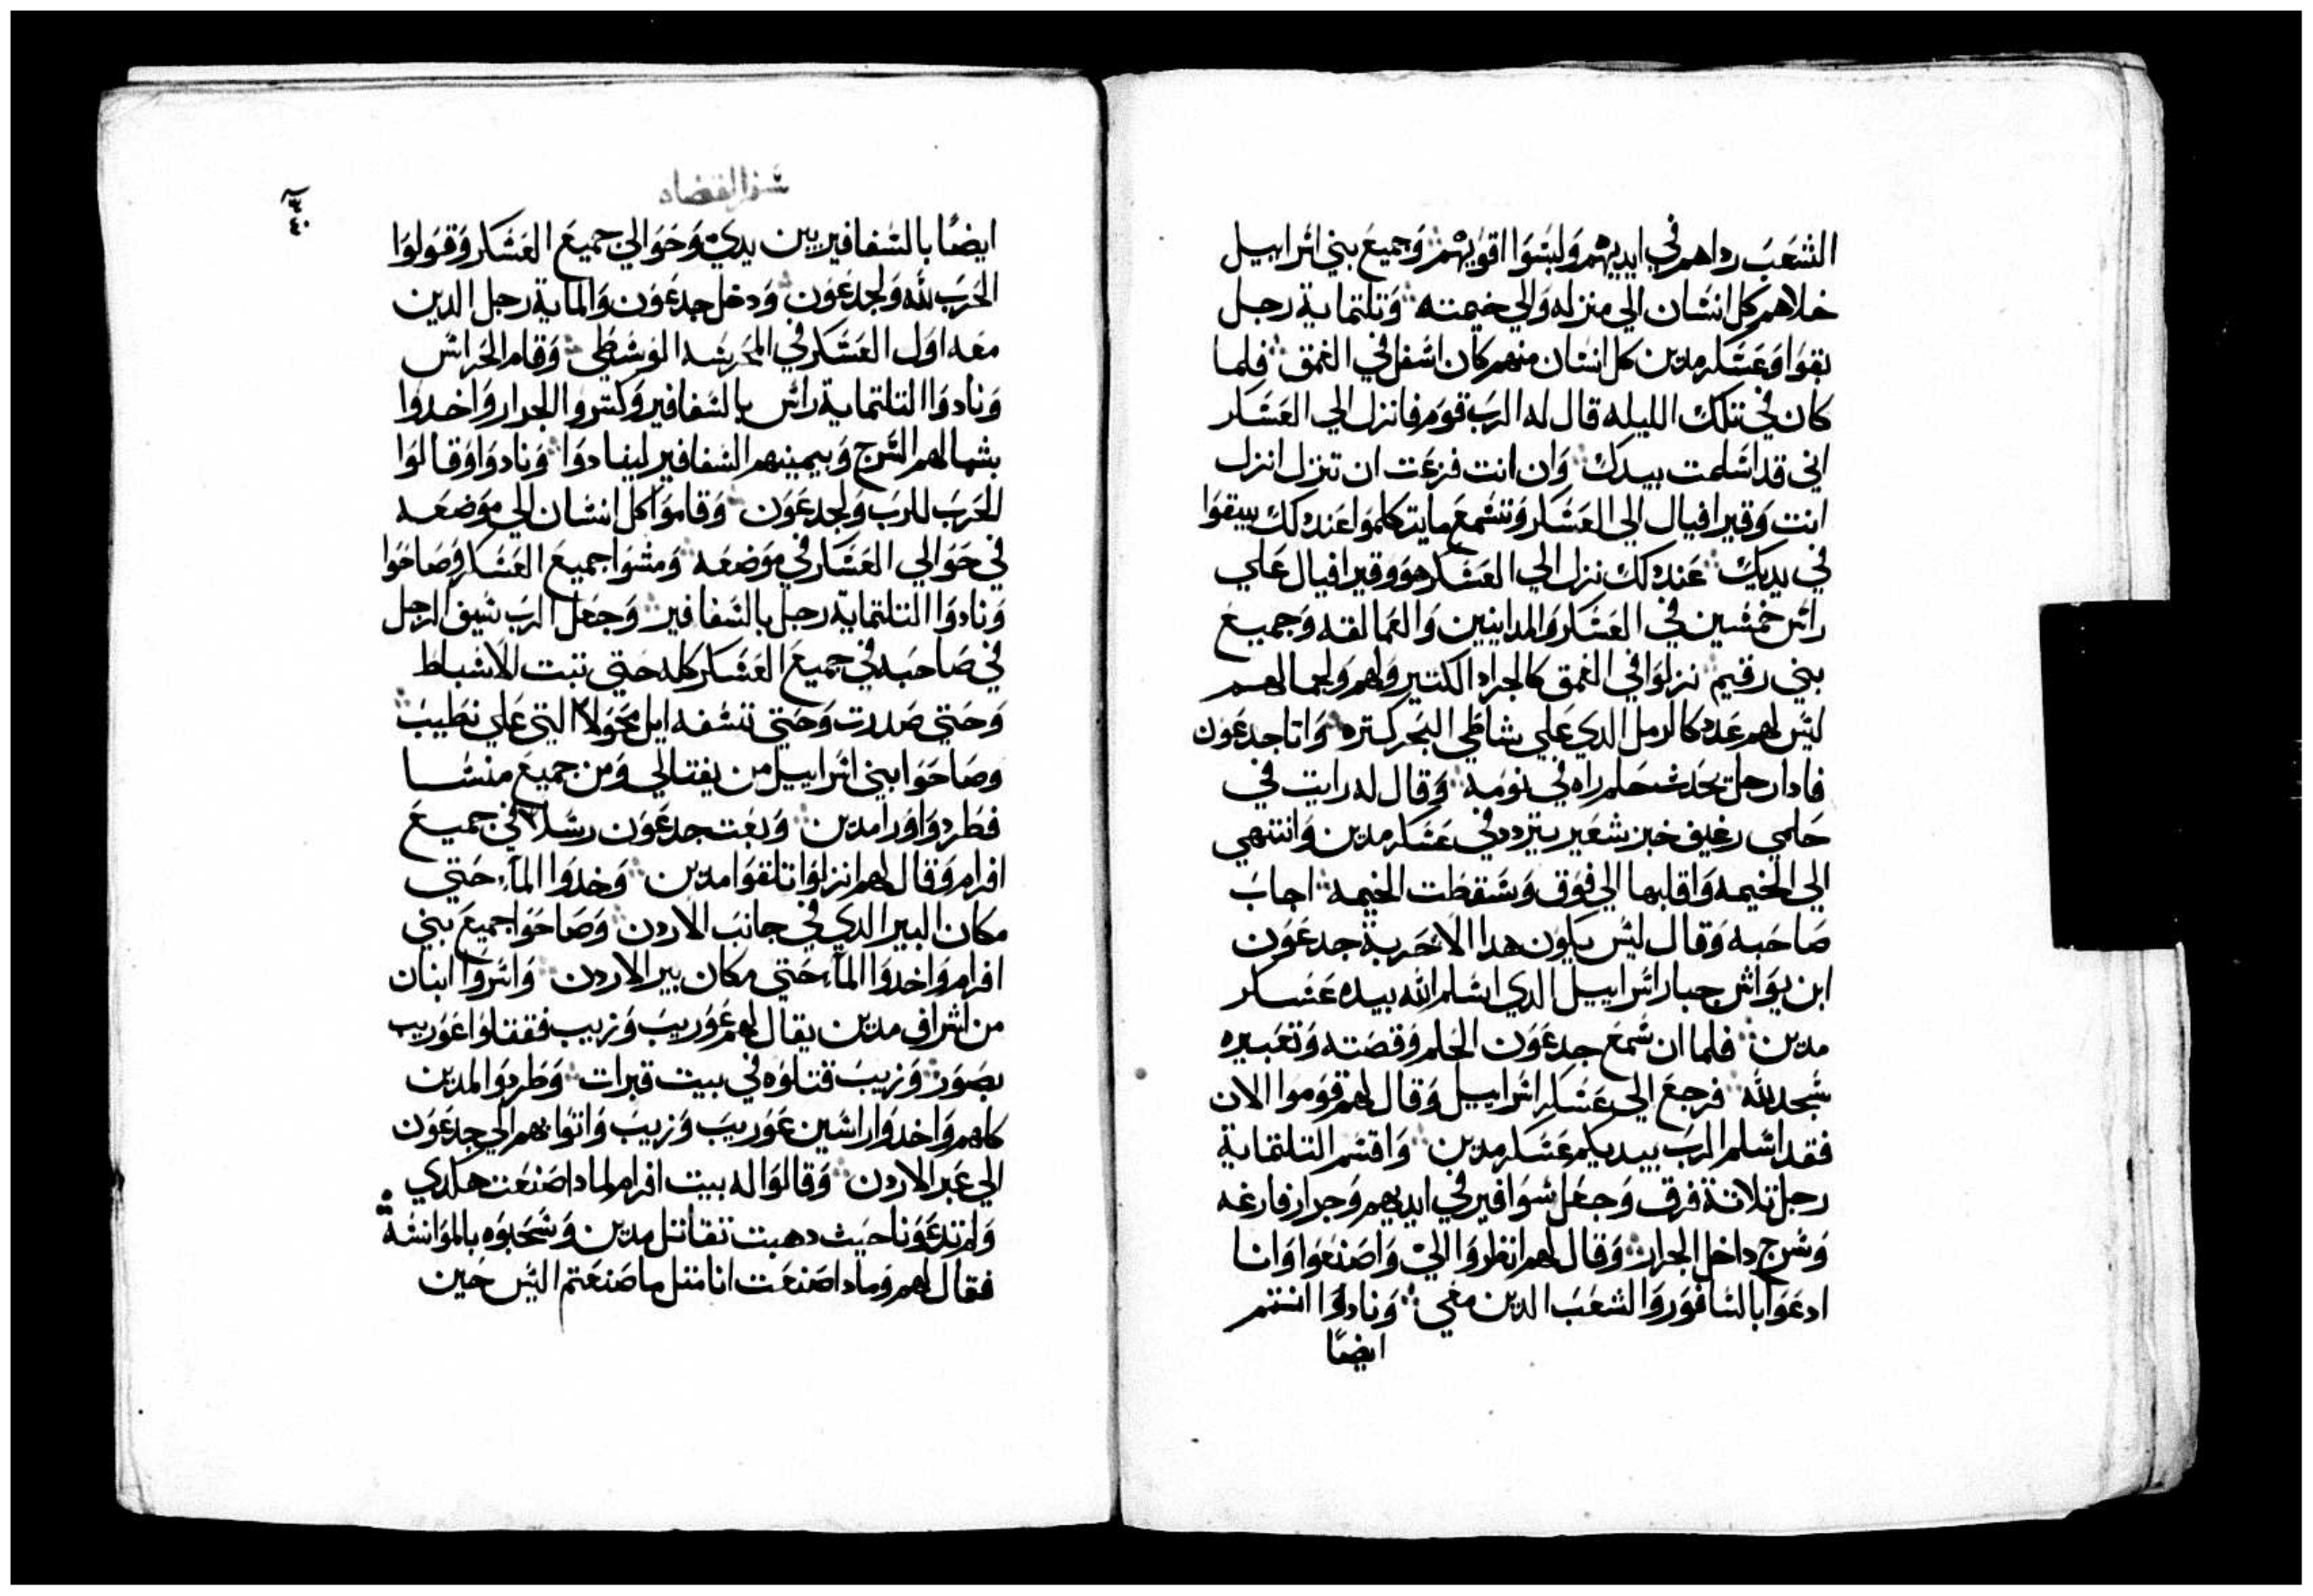 الشعب رداهم في ايديهم ولبسوا اقويهم وجميع بني اسراييل
خلاهم كل انسان الي منزله والي خيمته وتلتماية رجل
بقوا وعسكر مدين كل انسان منهم كان اسفل في الغمق فلما
كان في تلك الليله قال له الرب قوم فانزل الي العسكر
اني قد اسلمت بيدك وان انت فزعت ان تنزل انزل
انت وقير افيال الي العسكر وتسمع ما يتكلموا عند لك يبقوا
في يديك عند لك نزل الي العسكر هو وقير افيال علي
راس خمسين في العسكر والمدانيين والعمالقه وجميع
بني رقيم نزلوا في الغمق كالجراد الكتير ولهم ولجمالهم
ليس لهم عدد كالرمل الدي علي شاطي البحر كتره واتا جدعون
فادا رجل يحدت حلم راه في نومه وقال له رايت في
حلمي رغيف خبز شعير يتردد في عسكر مدين وانتهي
الي الخيمه واقلبها الي فوق وسقطت الخيمه اجاب
صاحبه وقال ليس يكون هدا الا حربة جدعون
ابن يواش جبار اسراييل الدي اسلم الله بيده عسكر
مدين فلما ان سمع جدعون الحلم وقصته وتعبيره
سجد لله فرجع الي عسكر اسراييل وقال لهم قوموا الان
فقد اسلم الرب بيديكم عسكر مدين واقسم التلتماية
رجل تلاتة فرق وجعل سوافير في ايديهم وجرار فارغه
وسرج داخل الجرار وقال لهم انظروا الي واصنعوا وانا
ادعوا بالسافور والشعب الدين معي ونادوا انتم
ايضًا
سفر القضاه
٣٤٠
ايضًا بالسفافير بين يدي وحوالي جميع العسكر وقولوا
الحرب لله ولجدعون ودخل جدعون والماية رجل الدين
معه اول العسكر في المحرسه الوسطي وقام الحراس
ونادوا التلتماية راس بالسفافير وكسروا الجرار واخدوا
بشمالهم السرج وبيمينهم السفافير لينادوا ونادوا وقالوا
الحرب للرب ولجدعون وقاموا كل انسان الي موضعه
في حوالي العسكر في موضعه ومشوا جميع العسكر وصاحوا
ونادوا التلتماية رجل بالسفافير وجعل الرب سيف الرجل
في صاحبه في جميع العسكر كله حتي تبت الاسباط
وحتي صدرت وحتي تسفه ايل محولا التي علي نطيب
وصاحوا بني اسراييل من يفتالي ومن جميع منسا
فطردوا ورا مدين وبعت جدعون رسلا في جميع
افرام وقال لهم انزلوا تلقوا مدين وخدوا المآ حتي
مكان البير الدي في جانب الاردن وصاحوا جميع بني
افرام واخدوا المآ حتي مكان بير الاردن واسروا اتنان
من اشراف مدين يقال لهم عوريب وزيب فقتلوا عوريب
بصور وزيب قتلوه في بيت قبرات وطردوا المدين
كلهم واخدوا راسين عوريب وزيب واتوا بهم الي جدعون
الي عبر الاردن وقالوا له بيت افرام لمادا صنعت هكدي
ولم تدعونا حيث دهبت تقاتل مدين وسحبوه بالموانسة
فقال لهم ومادا صنعت انا متل ما صنعتم اليس حين